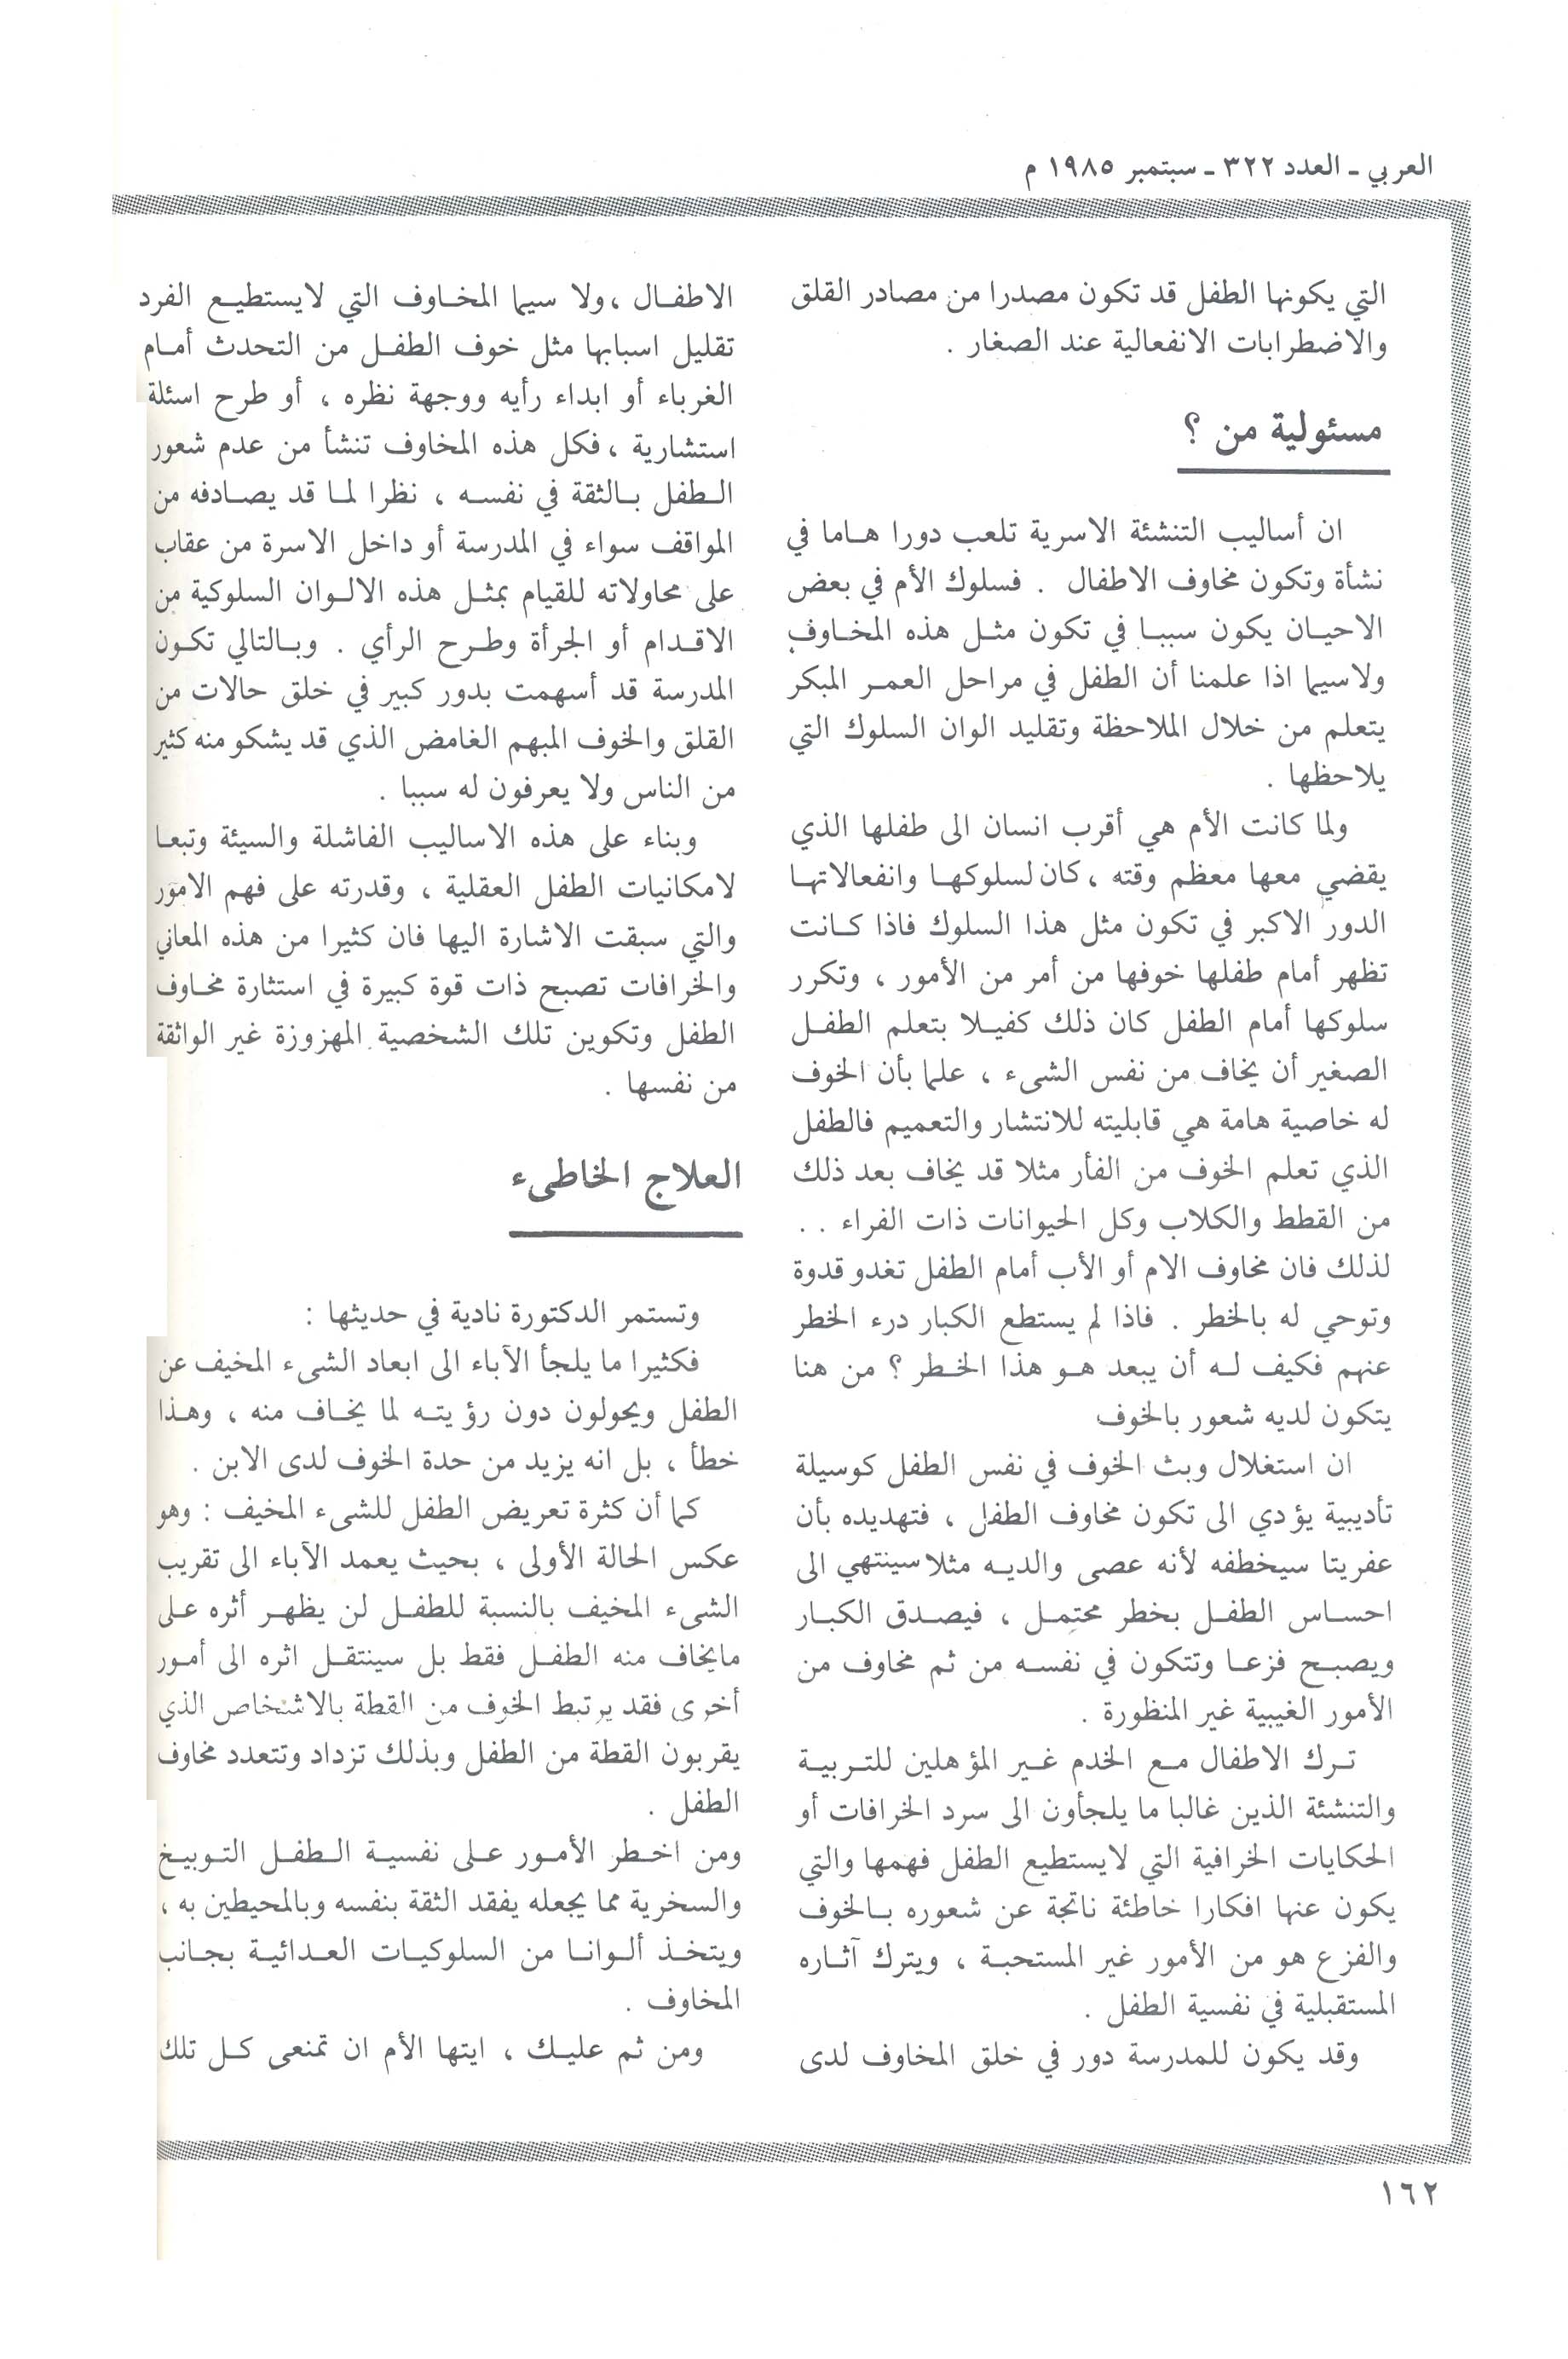 العربي - العدد ٣٢٢ - سبتمبر ١٩٨٥ م
التي يكونها الطفل قد تكون مصدرا من مصادر القلق
والاضطرابات الانفعالية عند الصغار .
مسئولية من ؟
ان أساليب التنشئة الاسرية تلعب دورا هاما في
نشأة وتكون مخاوف الاطفال . فسلوك الأم في بعض
الاحيان يكون سببا في تكون مثل هذه المخاوف
ولاسيما اذا علمنا أن الطفل في مراحل العمر المبكر
يتعلم من خلال الملاحظة وتقليد الوان السلوك التي
يلاحظها .
ولما كانت الأم هي أقرب انسان الى طفلها الذي
يقضي معها معظم وقته ، كان لسلوكها وانفعالاتها
الدور الاكبر في تكون مثل هذا السلوك فاذا كانت
تظهر أمام طفلها خوفها من أمر من الأمور ، وتكرر
سلوكها أمام الطفل كان ذلك كفيلا بتعلم الطفل
الصغير أن يخاف من نفس الشىء ، علما بأن الخوف
له خاصية هامة هي قابليته للانتشار والتعميم فالطفل
الذي تعلم الخوف من الفأر مثلا قد يخاف بعد ذلك
من القطط والكلاب وكل الحيوانات ذات الفراء . .
لذلك فان مخاوف الام أو الأب أمام الطفل تغدو قدوة
وتوحي له بالخطر . فاذا لم يستطع الكبار درء الخطر
عنهم فكيف له أن يبعد هو هذا الخطر ؟ من هنا
يتكون لديه شعور بالخوف
ان استغلال وبث الخوف في نفس الطفل كوسيلة
تأديبية يؤدي الى تكون مخاوف الطفل ، فتهديده بأن
عفريتا سيخطفه لأنه عصى والديه مثلا سينتهي الى
احساس الطفل بخطر محتمل ، فيصدق الكبار
ويصبح فزعا وتتكون في نفسه من ثم مخاوف من
الأمور الغيبية غير المنظورة .
ترك الاطفال مع الخدم غير المؤهلين للتربية
والتنشئة الذين غالبا ما يلجأون الى سرد الخرافات أو
الحكايات الخرافية التي لايستطيع الطفل فهمها والتي
يكون عنها افكارا خاطئة ناتجة عن شعوره بالخوف
والفزع هو من الأمور غير المستحبة ، ويترك آثاره
المستقبلية في نفسية الطفل .
وقد يكون للمدرسة دور في خلق المخاوف لدى
الاطفال ، ولا سيما المخاوف التي لايستطيع الفرد
تقليل اسبابها مثل خوف الطفل من التحدث أمام
الغرباء أو ابداء رأيه ووجهة نظره ، أو طرح اسئلة
استشارية ، فكل هذه المخاوف تنشأ من عدم شعور
الطفل بالثقة في نفسه ، نظرا لما قد يصادفه من
المواقف سواء في المدرسة أو داخل الاسرة من عقاب
على محاولاته للقيام بمثل هذه الالوان السلوكية من
الاقدام أو الجرأة وطرح الرأي . وبالتالي تكون
المدرسة قد أسهمت بدور كبير في خلق حالات من
القلق والخوف المبهم الغامض الذي قد يشكو منه كثير
من الناس ولا يعرفون له سببا .
وبناء على هذه الاساليب الفاشلة والسيئة وتبعا
لامكانيات الطفل العقلية ، وقدرته على فهم الامور
والتي سبقت الاشارة اليها فان كثيرا من هذه المعاني
والخرافات تصبح ذات قوة كبيرة في استثارة مخاوف
الطفل وتكوين تلك الشخصية المهزوزة غير الواثقة
من نفسها .
العلاج الخاطىء
وتستمر الدكتورة نادية في حديثها :
فكثيرا ما يلجأ الآباء الى ابعاد الشىء المخيف عن
الطفل ويحولون دون رؤيته لما يخاف منه ، وهذا
خطأ ، بل انه يزيد من حدة الخوف لدى الابن .
كما أن كثرة تعريض الطفل للشىء المخيف : وهو
عكس الحالة الأولى ، بحيث يعمد الآباء الى تقريب
الشىء المخيف بالنسبة للطفل لن يظهر أثره على
مايخاف منه الطفل فقط بل سينتقل اثره الى أمور
أخرى فقد يرتبط الخوف من القطة بالاشخاص الذي
يقربون القطة من الطفل وبذلك تزداد وتتعدد مخاوف
الطفل .
ومن اخطر الأمور على نفسية الطفل التوبيخ
والسخرية مما يجعله يفقد الثقة بنفسه وبالمحيطين به ،
ويتخذ ألوانا من السلوكيات العدائية بجانب
المخاوف .
ومن ثم عليك ، ايتها الأم ان تمنعى كل تلك
١٦٢